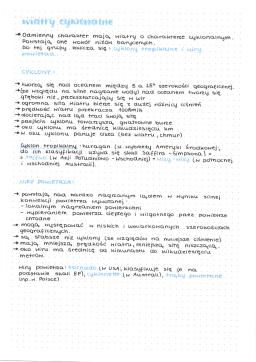 wiatry cyklonalne
→ Odmienny charakter mają wiatry o charakterze cyklonalnym.
Powstają one wokół niżów barycznych.
Do tej grupy należą się: cyklony tropikalne i wiry
powietrza.
CYKLONY:
→ tworzą się nad oceanem między 5 a 15° szerokości geograficznej.
(ze względu na silne nagrzanie wody) nad oceanem tworzy się
głęboki niż, przekształcający się w wir
→ ogromna siła wiatru bierze się z dużej różnicy ciśnień
→ prędkość wiatru przekracza 100km/h
→ docierając nad ląd traci swoją siłę
→ przejściu cyklonu towarzyszą, gwałtowne burze
→ oko cyklonu ma średnicę kilkudziesięciu km
→ w oku cyklonu panuje cisza (bez wiatru, chmur)
Cyklon tropikalny - huragan (u wybrzeży Ameryki Środkowej,
do ich klasyfikacji używa się skali Saffira - Simpsona) =
= tajfun (w Azji Południowo - Wschodniej) = willy-willy (w północnej
i wschodniej Australii).
WIRY POWIETRZA:
→ powstają nad bardzo nagrzanym lądem w wyniku silnej
konwekcji powietrza wywołanej:
- lokalnym nagrzaniem powierzchni
- wypieraniem powietrza ciepłego i wilgotnego przez powietrze
chłodne
→ mogą występować w niskich i umiarkowanych szerokościach
geograficznych.
→ są słabsze niż cyklony (ze względu na mniejsze ciśnienie)
→ mają mniejszą prędkość wiatru, mniejszą siłę niszczącą.
→ oko wiru ma średnicę od kilkunastu do kilkudziesięciu
metrów.
Wiry powietrza: tornado (w USA, klasyfikuje się je na
podstawie skali EF), cyklonetta (w Australii), trąby powietrzne
(np. w Polsce)